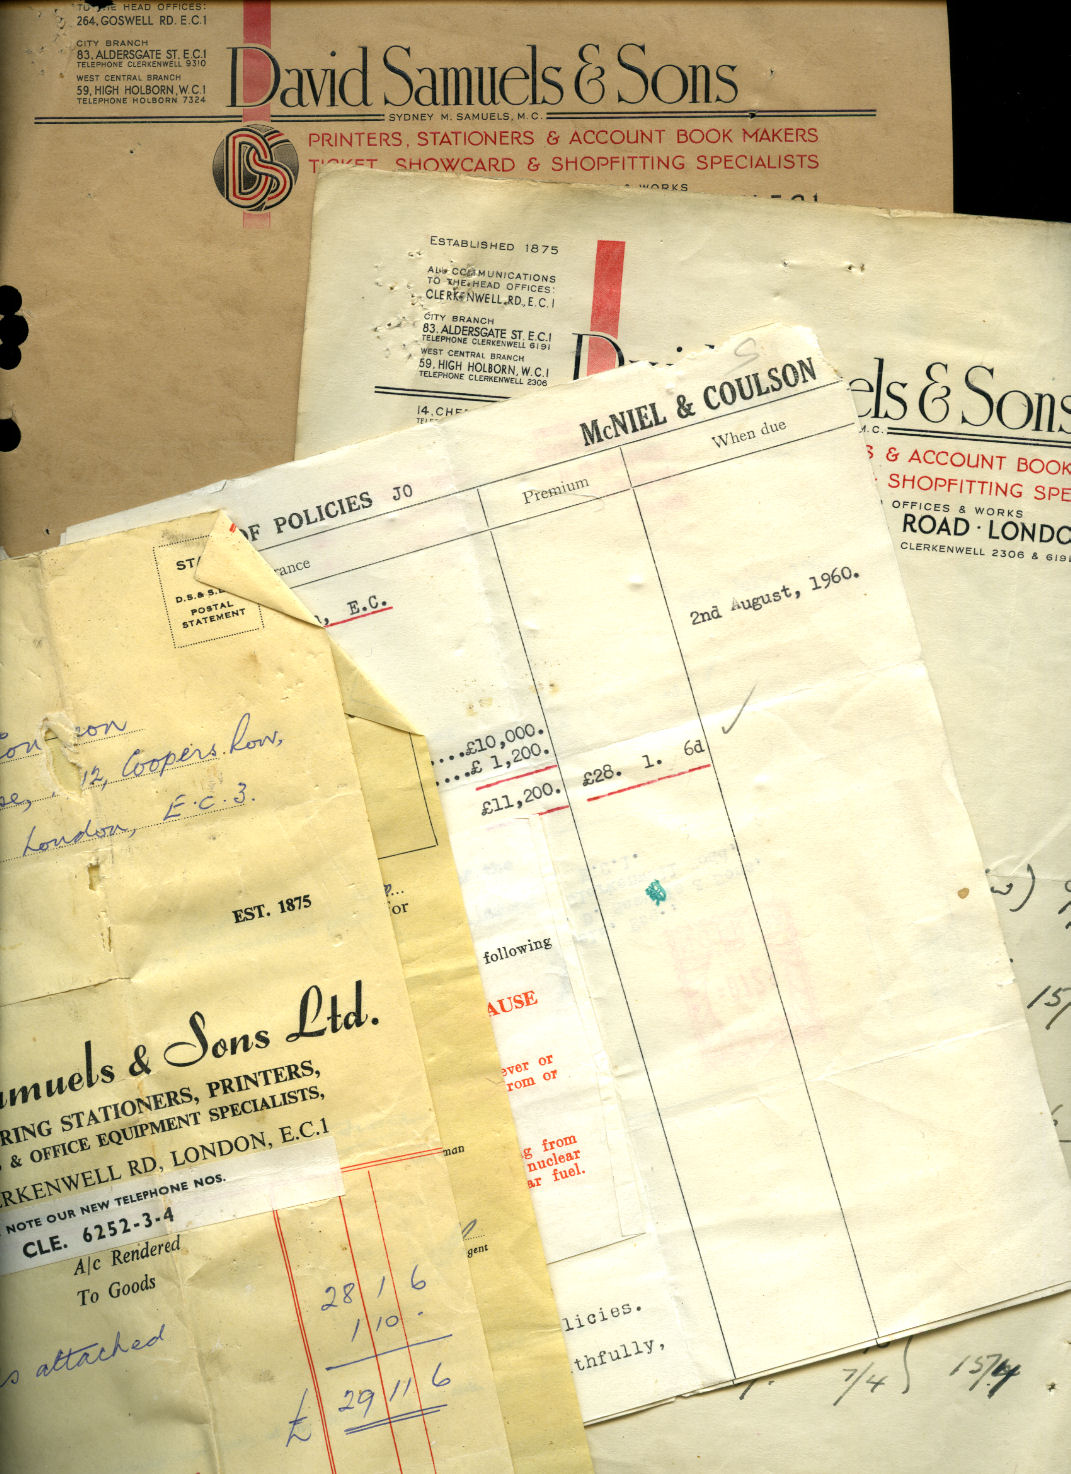 TO THE HEAD OFFICES:
264, GOSWELL RD. E.C.1
CITY BRANCH
83, ALDERSGATE ST. E.C.1
TELEPHONE CLERKENWELL 9310
WEST CENTRAL BRANCH
59, HIGH HOLBORN, W.C.1
TELEPHONE HOLBORN 7324
David Samuels & Sons
SYDNEY M. SAMUELS, M.C.
DS
PRINTERS, STATIONERS & ACCOUNT BOOK MAKERS
TICKET, SHOWCARD & SHOPFITTING SPECIALISTS
& WORKS
ESTABLISHED 1875
ALL COMMUNICATIONS
TO THE HEAD OFFICES:
CLERKENWELL RD., E.C.1
CITY BRANCH
83, ALDERSGATE ST. E.C.1
TELEPHONE CLERKENWELL 6191
WEST CENTRAL BRANCH
59, HIGH HOLBORN, W.C.1
TELEPHONE CLERKENWELL 2306
14, CHE
els & Sons
M.C.
S & ACCOUNT BOOK
SHOPFITTING SPE
OFFICES & WORKS
ROAD · LONDO
CLERKENWELL 2306 & 619
McNIEL & COULSON
OF POLICIES JO
rance
Premium
When due
, E.C.
2nd August, 1960.
....£10,000.
....£ 1,200.
£11,200.
£28. 1. 6d
following
AUSE
ever or
rom or
g from
nuclear
ar fuel.
licies.
thfully,
or
man
gent
15/
7/4
15/4
D.S. & S.
POSTAL
STATEMENT
12, Coopers Row,
London, E.C.3.
EST. 1875
amuels & Sons Ltd.
RING STATIONERS, PRINTERS,
& OFFICE EQUIPMENT SPECIALISTS,
ERKENWELL RD, LONDON, E.C.1
NOTE OUR NEW TELEPHONE NOS.
CLE. 6252-3-4
A/c Rendered
To Goods
s attached
28 1 6
1 10 -
£ 29 11 6